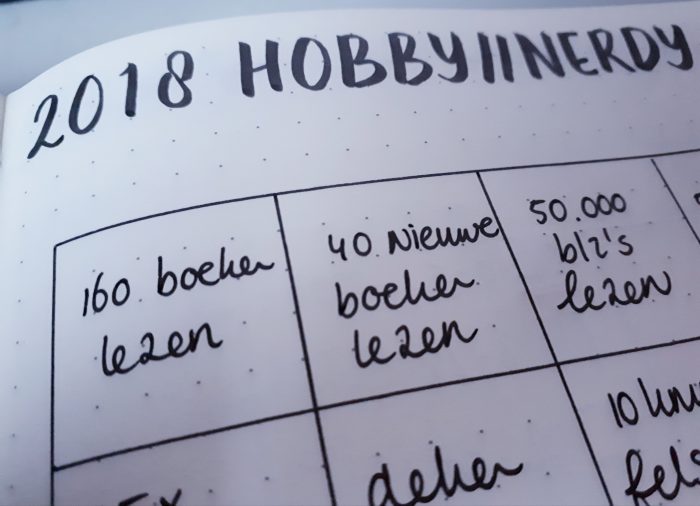 2018 HOBBY||NERDY
160 boeken
lezen
40 Nieuwe
boeken
lezen
50.000
blz's
lezen
deken
10